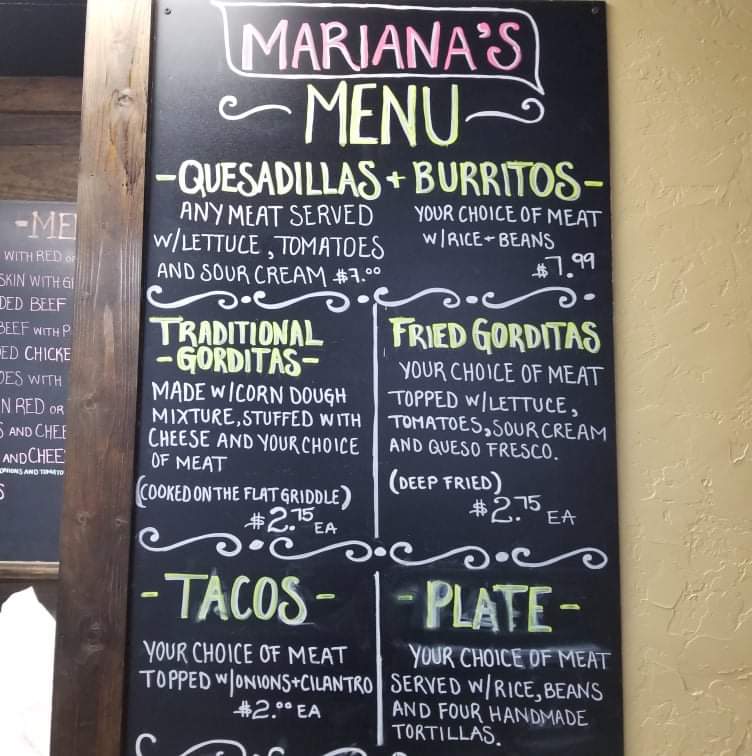 MARIANA'S
MENU
-QUESADILLAS + BURRITOS-
ANY MEAT SERVED
W/LETTUCE, TOMATOES
AND SOUR CREAM $7.00
YOUR CHOICE OF MEAT
W/RICE + BEANS
$7.99
TRADITIONAL
-GORDITAS-
MADE W/CORN DOUGH
MIXTURE, STUFFED WITH
CHEESE AND YOUR CHOICE
OF MEAT
(COOKED ON THE FLAT GRIDDLE)
$2.75 EA
FRIED GORDITAS
YOUR CHOICE OF MEAT
TOPPED W/LETTUCE,
TOMATOES, SOUR CREAM
AND QUESO FRESCO.
(DEEP FRIED)
$2.75 EA
-TACOS-
YOUR CHOICE OF MEAT
TOPPED W/ONIONS+CILANTRO
$2.00 EA
-PLATE-
YOUR CHOICE OF MEAT
SERVED W/RICE, BEANS
AND FOUR HANDMADE
TORTILLAS.
-ME
WITH RED
SKIN WITH
DED BEEF
BEEF WITH P
ED CHICKE
OES WITH
N RED OR
S AND CHEE
AND CHEE
ONIONS AND TOMATO
S